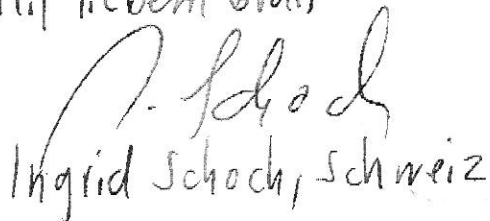 Mit liebem Gruß
I. Schoch
Ingrid Schoch, Schweiz